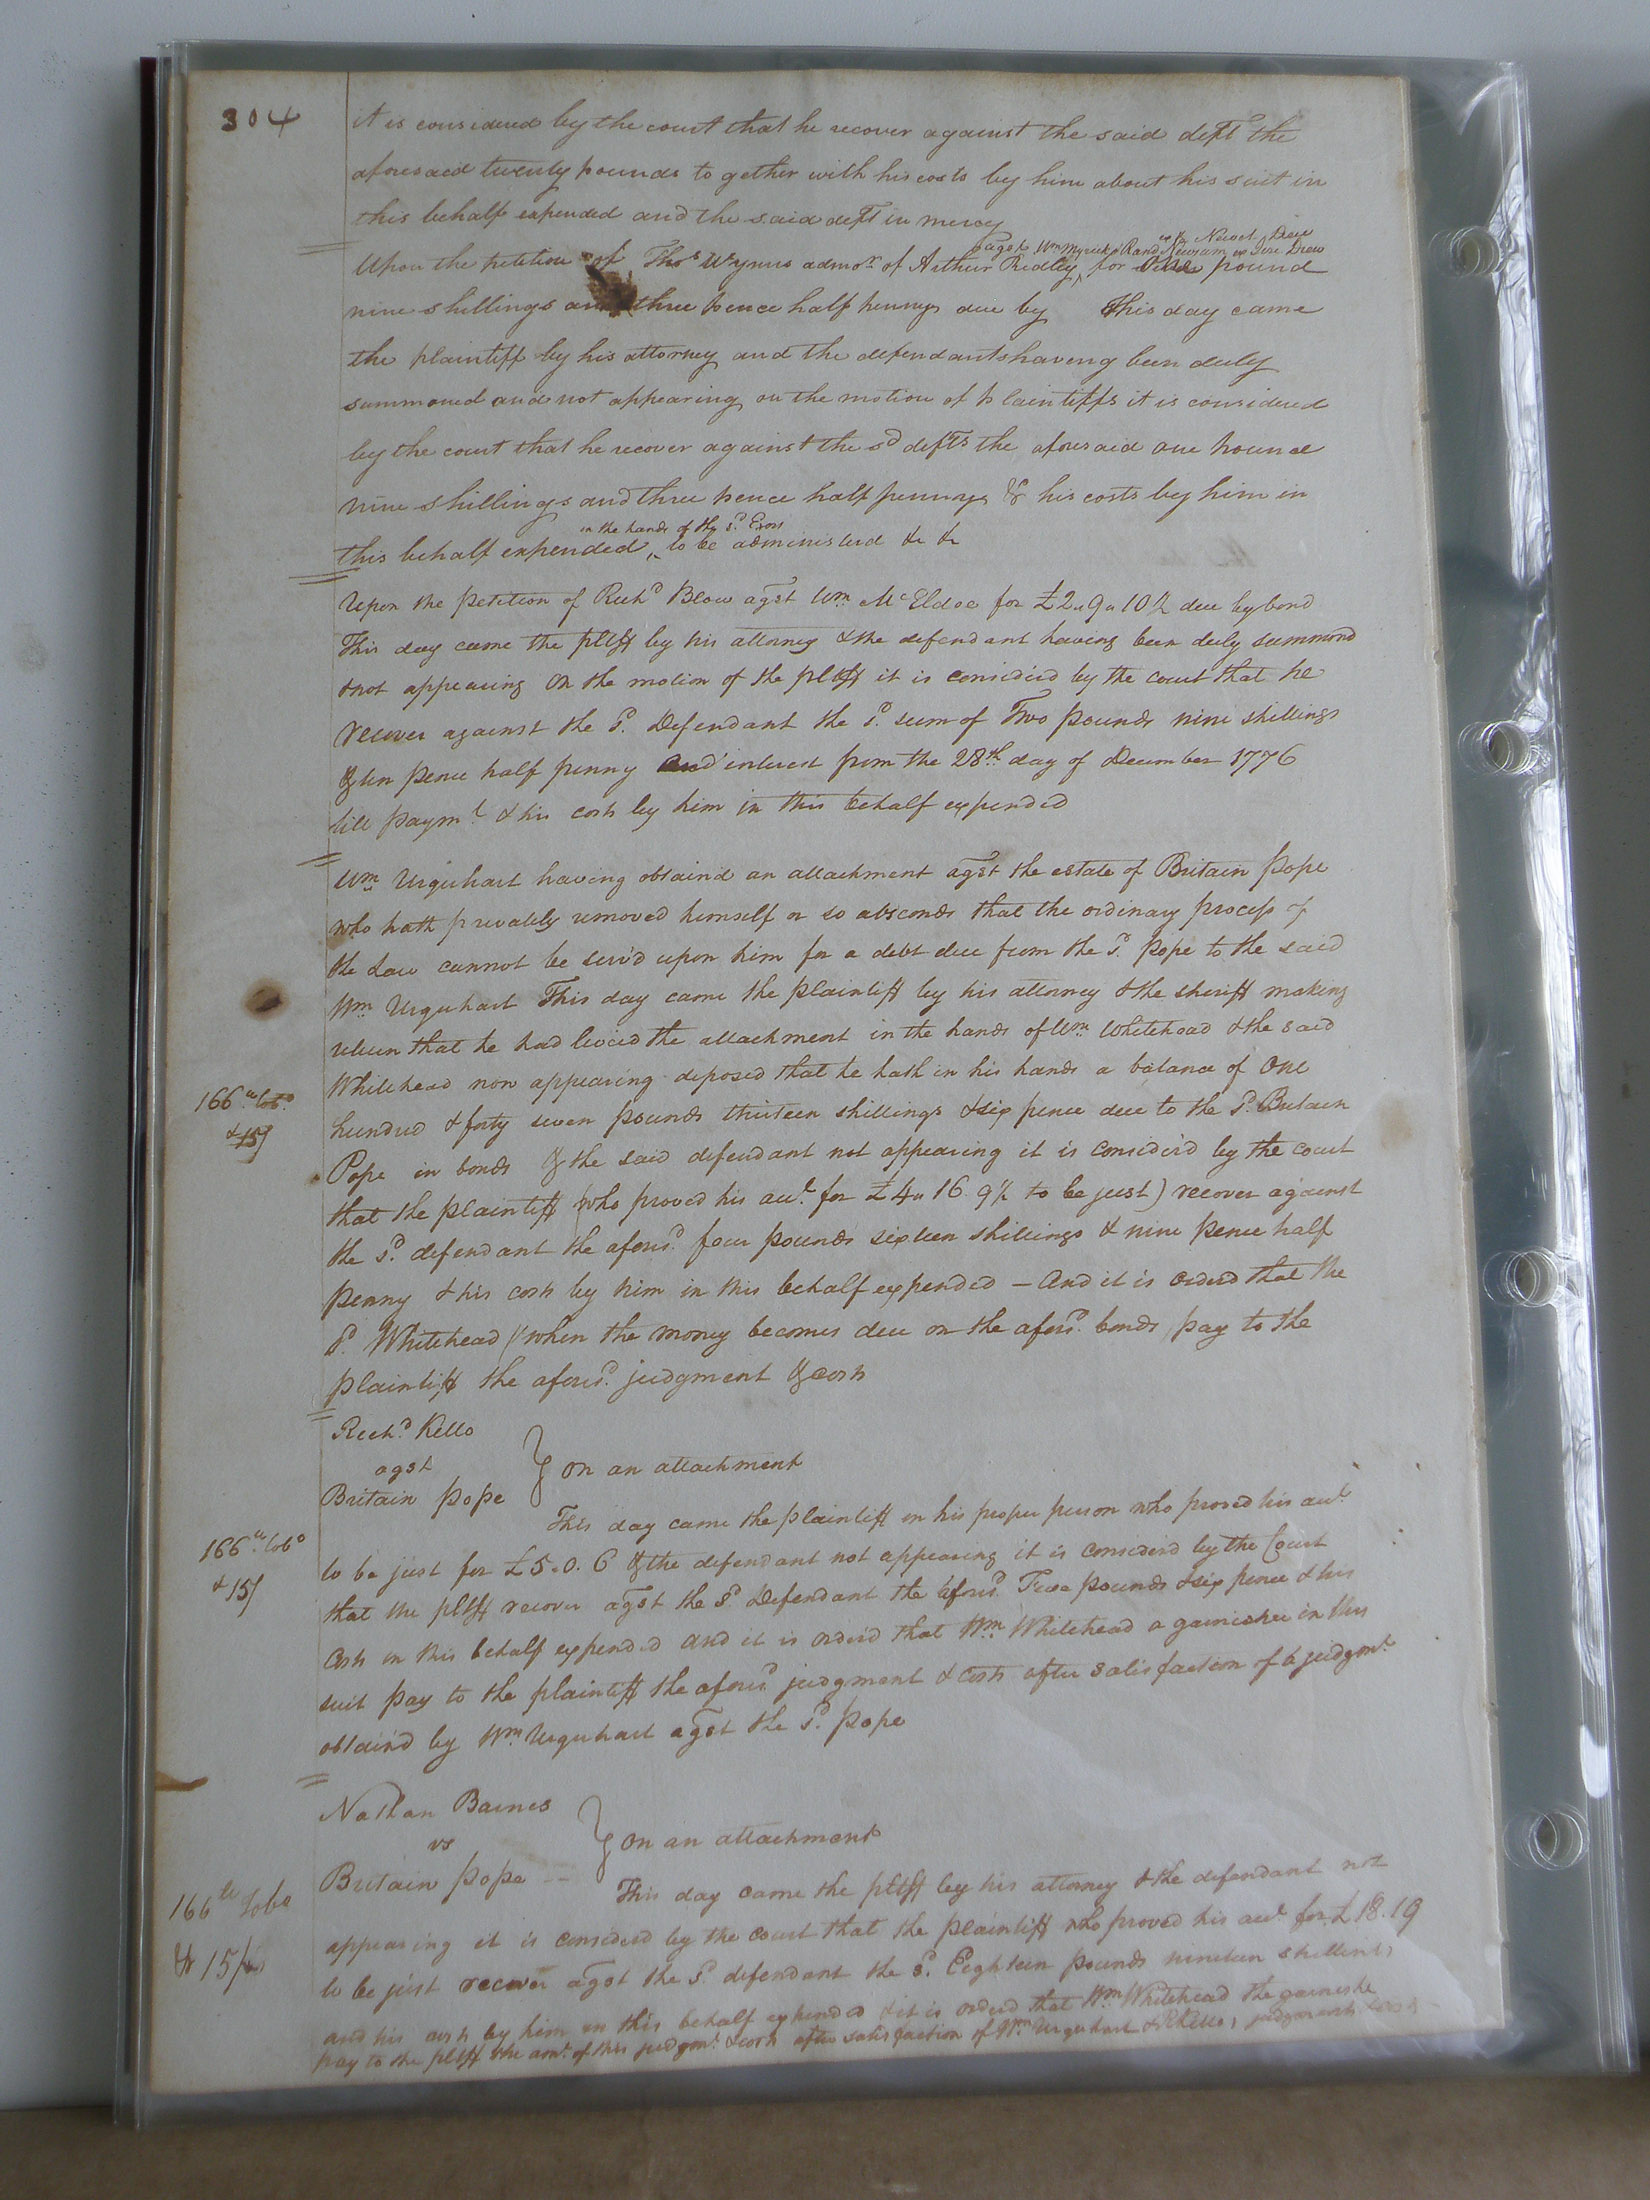 304
it is considered by the court that he recover against the said deft the
aforesaid twenty pounds to gether with his costs by him about his suit in
this behalf expended and the said deft in mercy
agst Wm Myrick &
Upon the petition of Thos Wynns admor. of Arthur Ridley, for pound
nine shillings and three pence half penny due by This day came
the plaintiff by his attorney and the defendants having been duly
summoned and not appearing on the motion of plaintiffs it is considered
by the court that he recover against the sd defts the aforesaid one pound
nine shillings and three pence half penny & his costs by him in
in the hands of the sd Exors
this behalf expended ‸ to be administerd &c &c
Upon the petition of Richd Blow agst Wm McEldoe for £2"9"10½ due by bond
This day came the pltff by his attorney & the defendant having been duly summond
& not appearing On the motion of the pltff it is considerd by the court that he
recover against the sd. Defendant the sd. sum of Two pounds nine shillings
& ten pence half penny and interest from the 28th day of December 1776
till paymt & his costs by him in this behalf expended
Wm Urquhart having obtain'd an attachment agst the estate of Britain Pope
who hath privately removed himself or so absconds that the ordinary process of
the Law cannot be serv'd upon him for a debt due from the sd. Pope to the said
Wm Urquhart This day came the plaintiff by his attorney & the sheriff making
return that he had levied the attachment in the hands of Wm Whitehead & the said
Whitehead now appearing deposed that he hath in his hands a balance of One
166 lb tobo
hundred & forty seven pounds thirteen shillings & six pence due to the sd. Britain
& 15/
Pope in bonds & the said defendant not appearing it is consider'd by the court
that the plaintiff (who proved his acct. for £4"16.9½ to be just) recover against
the sd. defendant the aforsd. four pounds sixteen shillings & nine pence half
penny & his costs by him in this behalf expended — And it is orderd that the
sd. Whitehead (when the money becomes due on the aforsd. bonds) pay to the
plaintiff the aforsd. judgment & costs
Richd. Kello
agst
} on an attachment
Britain Pope
This day came the plaintiff in his proper person who proved his acct.
166 lb tobo
to be just for £5.0.6 & the defendant not appearing it is considerd by the Court
& 15/
that the pltff recover agst the sd Defendant the aforsd. pounds & six pence & his
Costs in this behalf expended and it is orderd that Wm Whitehead a garnishee in this
suit pay to the plaintiff the aforsd judgment & Costs after satisfaction of a judgmt.
obtain'd by Wm Urquhart agst the sd. Pope
Nathan Barnes
vs
} on an attachment
Britain Pope --
This day came the pltff by his attorney & the defendant not
166 lb Tobo
appearing it is considerd by the court that the plaintiff who proved his acct. for £18.19
& 15/
to be just recover agst the sd defendant the sd. Eighteen pounds nineteen shillings
and his costs by him in this behalf expended & it is orderd that Wm Whitehead the garnishee
pay to the pltff the amt. of this judgmt. & costs after satisfaction of Wm Urquhart & R Kello's judgments & costs